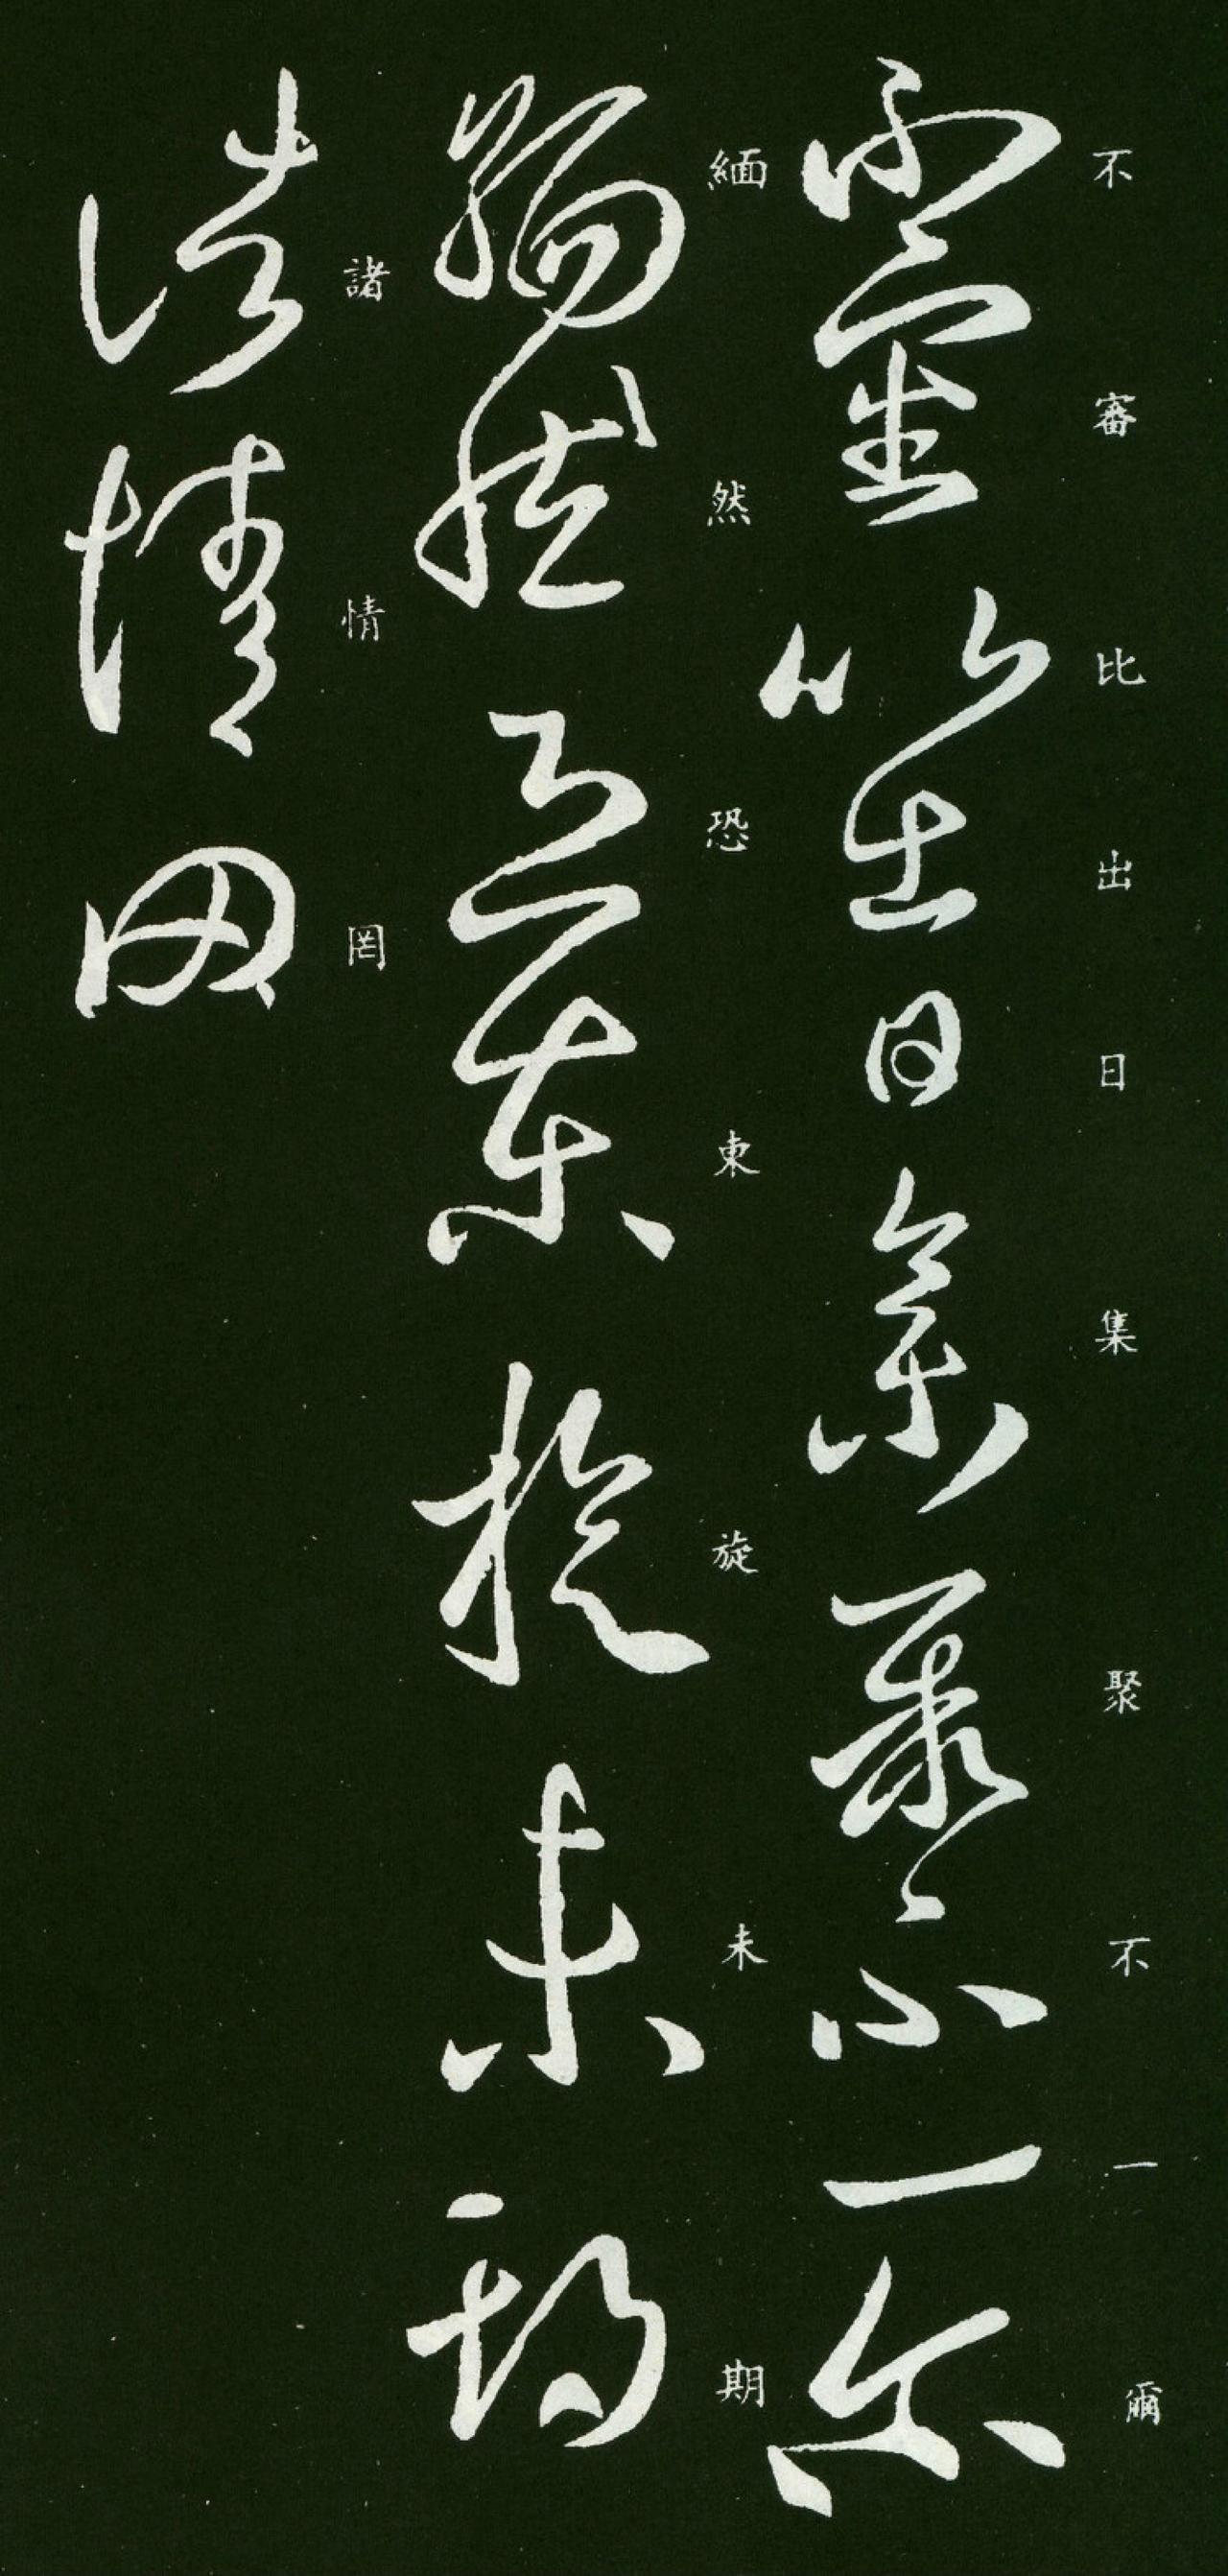 不審比出日集聚不一爾
緬然恐東旋未期
諸情罔